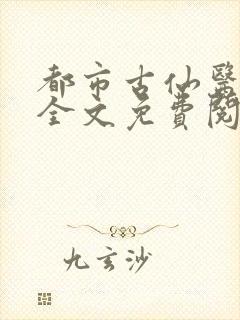 都市古仙醫
全文免費閱
九玄沙